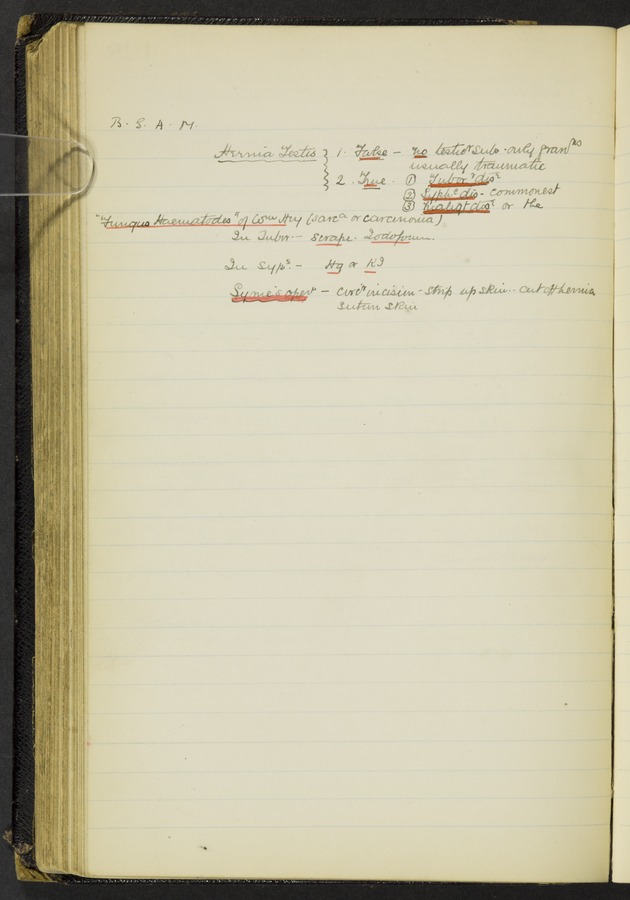 B. S. A. M.
Hernia Testis 1. False - no testicr subs. only grans
usually traumatic
2. True. ① Tuberr dise
② Syphc dis - commonest
③ Maligt dise or the
"Fungus Haematodes" of Wm Hey (sarca or carcinoma)
In Tubr. - scrape. Iodoform.
In Sypc. - Hg or KI
Syme's opern - circr incision - strip up skin - cut off hernia
suture skin